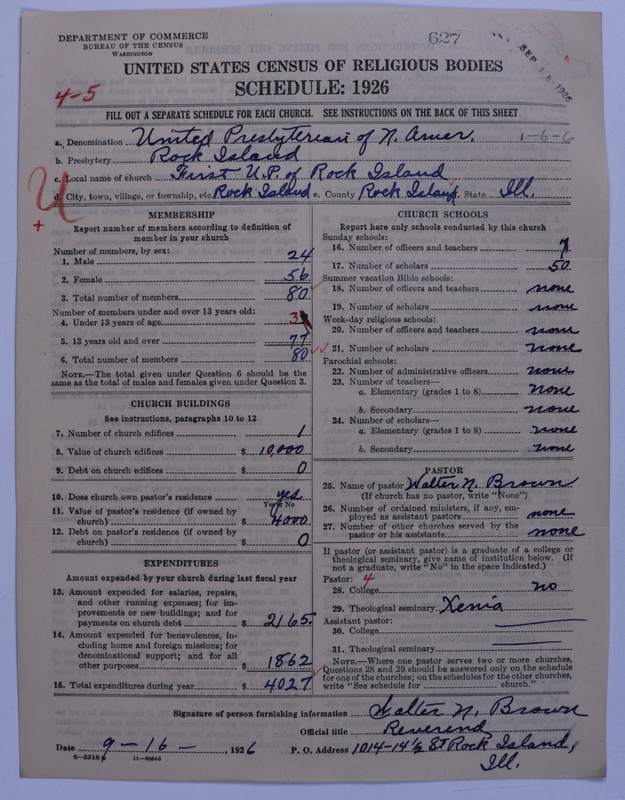 627
SEP 18 1926
DEPARTMENT OF COMMERCE
BUREAU OF THE CENSUS
WASHINGTON
UNITED STATES CENSUS OF RELIGIOUS BODIES
SCHEDULE: 1926
4-5
FILL OUT A SEPARATE SCHEDULE FOR EACH CHURCH. SEE INSTRUCTIONS ON THE BACK OF THIS SHEET
a. Denomination United Presbyterian of N. Amer. 1-6-6
b. Presbytery Rock Island
c. Local name of church First U.P. of Rock Island
d. City, town, village, or township, etc. Rock Island e. County Rock Island State Ill.
U
+
MEMBERSHIP
Report number of members according to definition of
member in your church
Number of members, by sex:
1. Male 24
2. Female 56
3. Total number of members 80
Number of members under and over 13 years old:
4. Under 13 years of age 3
5. 13 years old and over 77
6. Total number of members 80
NOTE.—The total given under Question 6 should be the
same as the total of males and females given under Question 3.
CHURCH BUILDINGS
See instructions, paragraphs 10 to 12
7. Number of church edifices 1
8. Value of church edifices $ 10,000
9. Debt on church edifices $ 0
10. Does church own pastor's residence yes
Yes or No
11. Value of pastor's residence (if owned by
church) $ 4000
12. Debt on pastor's residence (if owned by
church) $ 0
EXPENDITURES
Amount expended by your church during last fiscal year
13. Amount expended for salaries, repairs,
and other running expenses; for im-
provements or new buildings; and for
payments on church debt $ 2165.
14. Amount expended for benevolences, in-
cluding home and foreign missions; for
denominational support; and for all
other purposes $ 1862
15. Total expenditures during year $ 4027
CHURCH SCHOOLS
Report here only schools conducted by this church
Sunday schools:
16. Number of officers and teachers 7
17. Number of scholars 50
Summer vacation Bible schools:
18. Number of officers and teachers none
19. Number of scholars none
Week-day religious schools:
20. Number of officers and teachers none
21. Number of scholars none
Parochial schools:
22. Number of administrative officers none
23. Number of teachers—
a. Elementary (grades 1 to 8) none
b. Secondary none
24. Number of scholars—
a. Elementary (grades 1 to 8) none
b. Secondary none
PASTOR
25. Name of pastor Walter N. Brown
(If church has no pastor, write "None")
26. Number of ordained ministers, if any, em-
ployed as assistant pastors none
27. Number of other churches served by the
pastor or his assistants none
If pastor (or assistant pastor) is a graduate of a college or
theological seminary, give name of institution below. (If
not a graduate, write "No" in the space indicated.)
Pastor: 4
28. College no
29. Theological seminary Xenia
Assistant pastor:
30. College
31. Theological seminary
NOTE.—Where one pastor serves two or more churches,
Questions 28 and 29 should be answered only on the schedule
for one of the churches; on the schedules for the other churches,
write "See schedule for church."
Signature of person furnishing information Walter N. Brown
Official title Reverend
Date 9-16-, 1926 P. O. Address 1014-14½ St Rock Island,
Ill.
8-5518